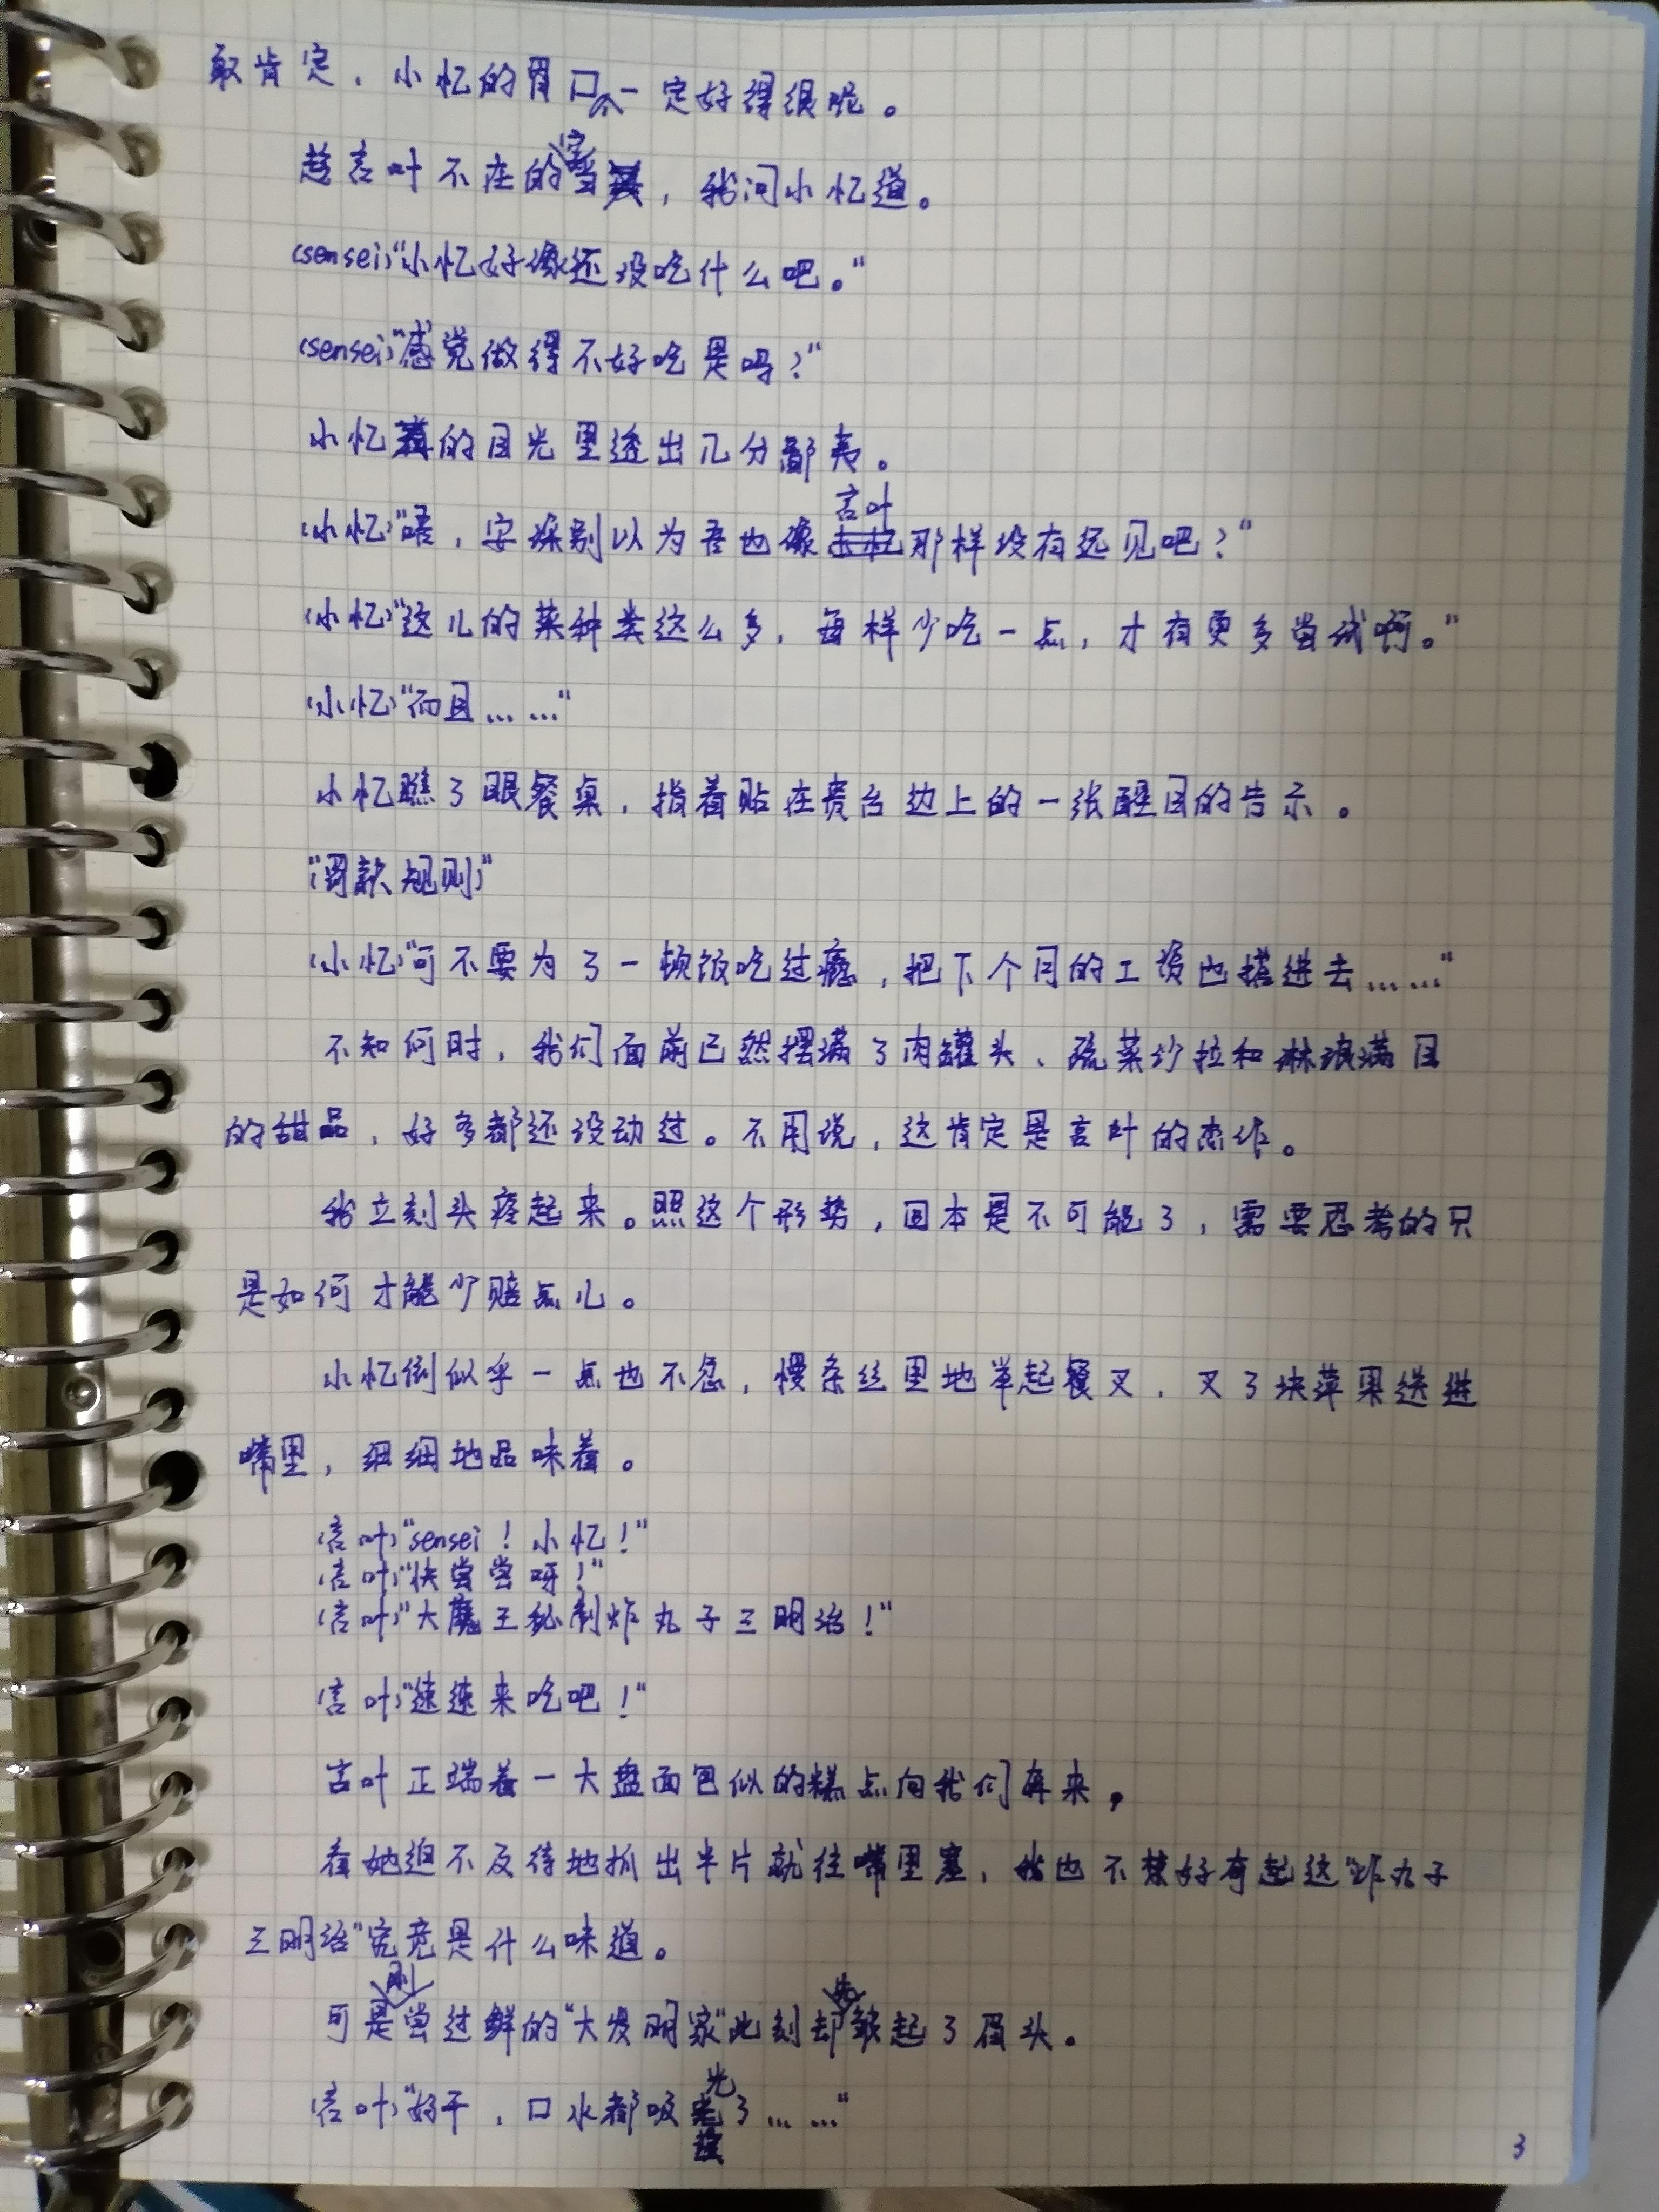 敢肯定，小忆的胃口不一定好得很呢。
趁言叶不在的空当，我问小忆道。
(sensei)“小忆好像还没吃什么吧。”
(sensei)“感觉做得不好吃是吗？”
小忆的目光里透出几分鄙夷。
(小忆)“唔，安珠别以为吾也像言叶那样没有远见吧？”
(小忆)“这儿的菜种类这么多，每样少吃一点，才有更多尝试啊。”
(小忆)“而且……”
小忆瞧了眼餐桌，指着贴在贵台边上的一张醒目的告示。
“(罚款规则)”
(小忆)“可不要为了一顿饭吃过瘾，把下个月的工资也搭进去……”
不知何时，我们面前已然摆满了肉罐头、蔬菜沙拉和琳琅满目
的甜品，好多都还没动过。不用说，这肯定是言叶的杰作。
我立刻头疼起来。照这个形势，回本是不可能了，需要思考的只
是如何才能少赔点儿。
小忆倒似乎一点也不急，慢条丝里地举起餐叉，叉了块苹果送进
嘴里，细细地品味着。
(言叶)“sensei！小忆！”
(言叶)“快尝尝呀！”
(言叶)“大魔王秘制炸丸子三明治！”
(言叶)“速速来吃吧！”
言叶正端着一大盘面包似的糕点向我们奔来，
看她迫不及待地抓出半片就往嘴里塞，我也不禁好奇起这“炸丸子
三明治”究竟是什么味道。
可是刚尝过鲜的“大发明家”此刻却先皱起了眉头。
(言叶)“好干，口水都吸光了……”
3